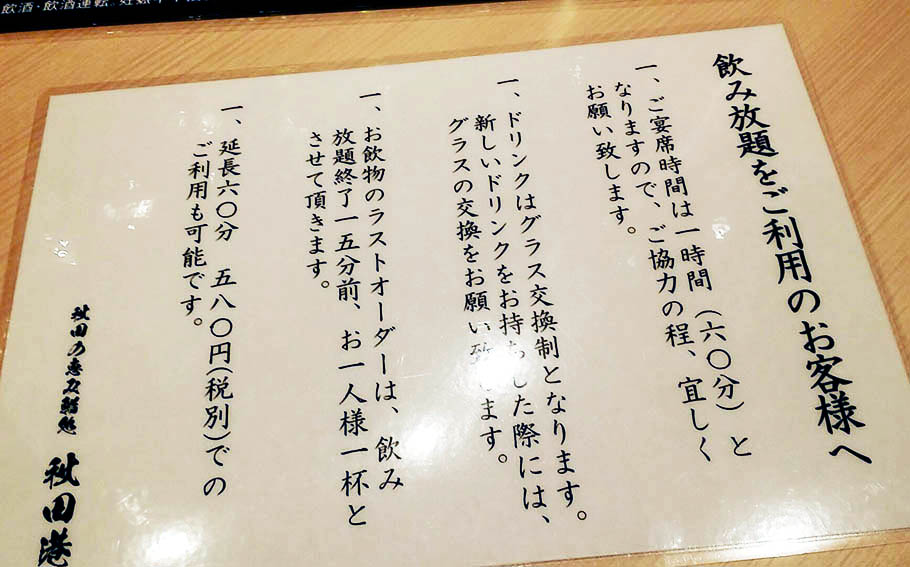 飲酒・飲酒運転。
飲み放題をご利用のお客様へ
一、ご宴席時間は一時間（六〇分）と
なりますので、ご協力の程、宜しく
お願い致します。
一、ドリンクはグラス交換制となります。
新しいドリンクをお持ちした際には、
グラスの交換をお願い致します。
一、お飲物のラストオーダーは、飲み
放題終了一五分前、お一人様一杯と
させて頂きます。
一、延長六〇分　五八〇円(税別)での
ご利用も可能です。
秋田の恵み鮨処　秋田港